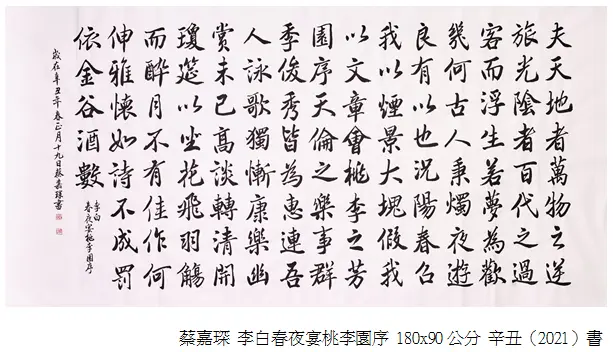 夫天地者萬物之逆
旅光陰者百代之過
客而浮生若夢為歡
幾何古人秉燭夜遊
良有以也況陽春召
我以煙景大塊假我
以文章會桃李之芳
園序天倫之樂事群
季俊秀皆為惠連吾
人詠歌獨慚康樂幽
賞未已高談轉清開
瓊筵以坐花飛羽觴
而醉月不有佳作何
伸雅懷如詩不成罰
依金谷酒數
李白
春夜宴桃李園序
歲在辛丑年春正月十九日蔡嘉琛書
蔡嘉琛 李白春夜宴桃李園序 180x90公分 辛丑（2021）書